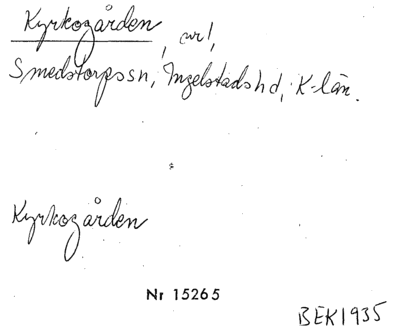 Kyrkogården, url,
Smedstorps sn, Ingelstads hd, K-län.
Kyrkogården
Nr 15265
BEK1935